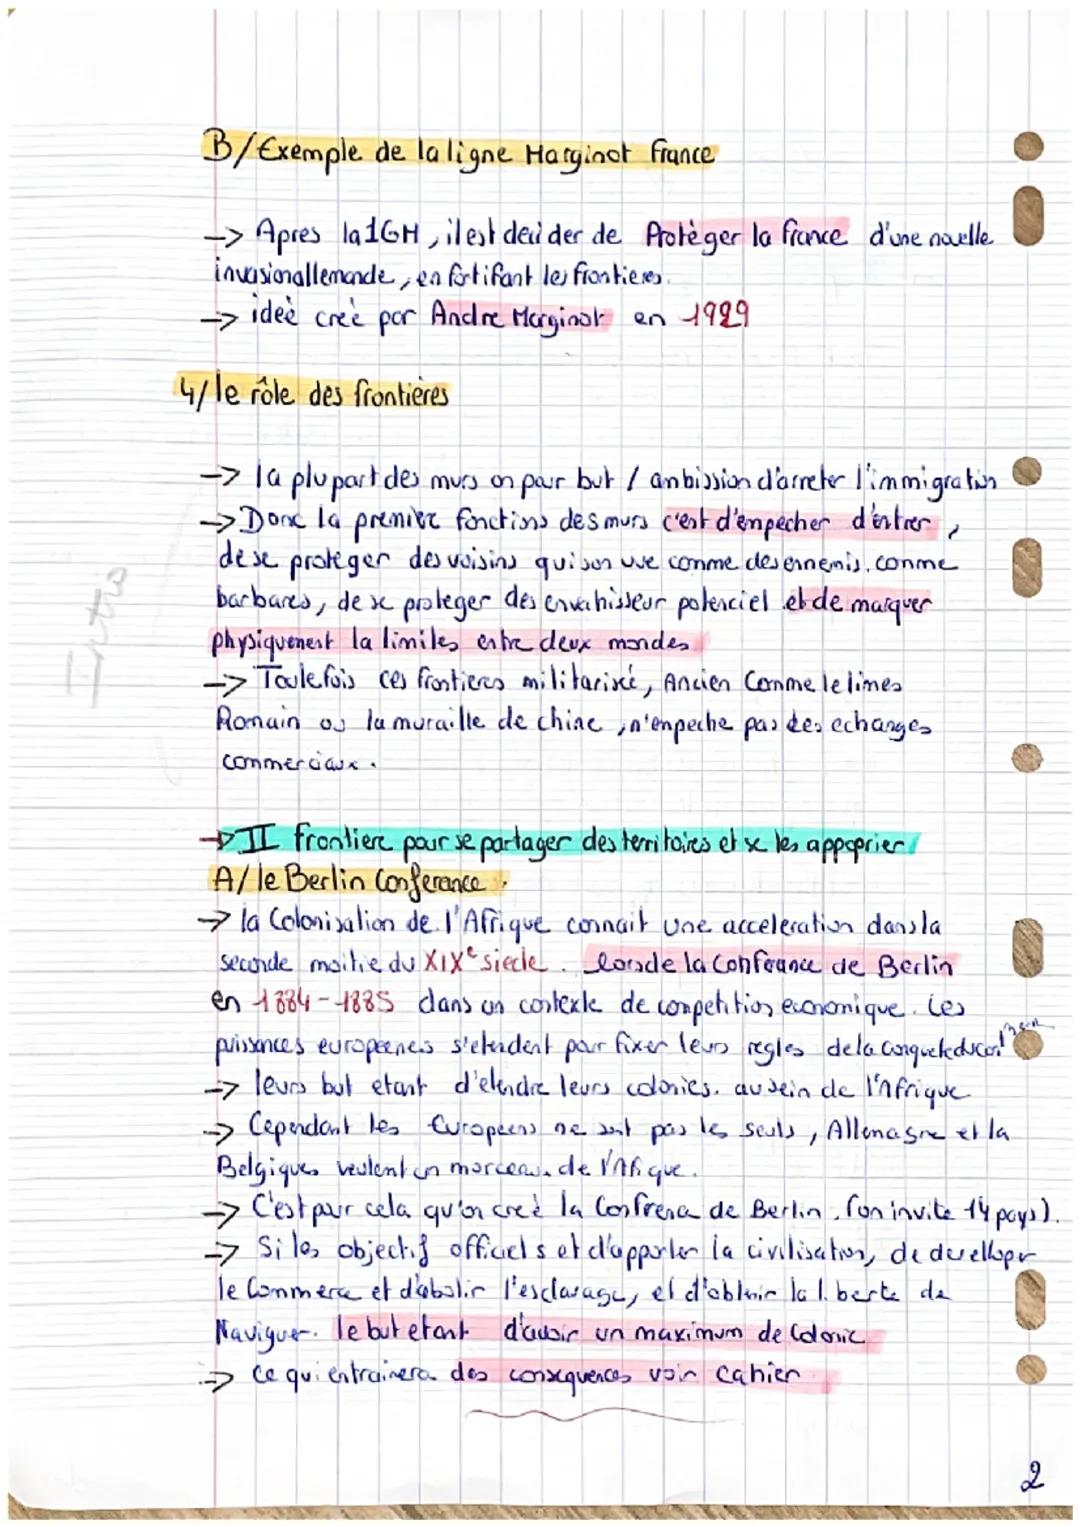 B/Exemple de la ligne Marginot France
-> Apres la 1GM, il est decider de Protèger la france d'une nouvelle
invasion allemande, en fortifant les frontieres.
-> ideè creè par Andre Marginot en 1929
4/ le rôle des frontières
-> la plupart des murs on pour but / ambission d'arreter l'immigration
-> Donc la premiere fonctions des murs c'est d'empecher d'entrer,
de se proteger des voisins qui son vue comme des ennemis, comme
barbares, de se proteger des envahisseur potenciel et de marquer
physiquement la limites entre deux mondes
-> Toutefois ces frontieres militariseé, Ancien Comme le limes
Romain ou la muraille de chine, n'empeche pas des echanges
commerciaux.
Intro
-> II frontiere pour se partager des territoires et se les appoprier
A/ le Berlin Conference.
-> la Colonisation de l'Afrique connait une acceleration dans la
seconde moitie du XIXe siecle. Lors de la Conferance de Berlin
en 1884-1885 dans un contexte de competition economique. Les
puissances europeenes s'etendent pour fixer leurs regles de la conquete du
-> leurs but etant d'etendre leurs colonies. au sein de l'Afrique
-> Cependant les Europeens ne sont pas les seuls, Allemagne et la
Belgiques veulent un morceau de l'Afrique.
-> C'est pour cela qu'on creè la Confrence de Berlin. (on invite 14 pays).
-> Si les objectif officiels et d'apporter la civilisation, de develloper
le Commerce et d'abolir l'esclavage, et d'obtenir la liberte de
Naviguer. le but etant d'avoir un maximum de Colonie
-> Ce qui entrainera des consequences voir Cahier
2